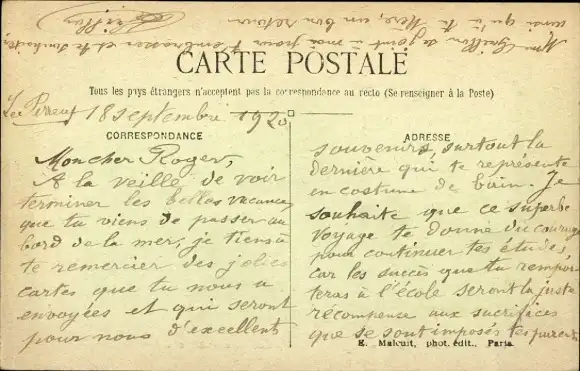 CARTE POSTALE
Tous les pays étrangers n'acceptent pas la correspondance au recto (Se renseigner à la Poste)
Le Perreux 18 septembre 1920
CORRESPONDANCE
Mon cher Roger,
A la veille de voir
terminer les belles vacances
que tu viens de passer au
bord de la mer, je tiens à
te remercier des jolies
cartes que tu nous a
envoyées et qui seront
pour nous d'excellents
ADRESSE
souvenirs, surtout la
dernière qui te représente
en costume de bain. Je
souhaite que ce superbe
voyage te donne du courage
pour continuer tes études,
car les succès que tu rempor
teras à l'école seront la juste
récompense aux sacrifices
que se sont imposés tes parents
E. Malcuit, phot. édit., Paris.
Mme se joint à moi pour t'embrasser et te souhaiter,
ainsi qu'à ta Mère, un bon retour